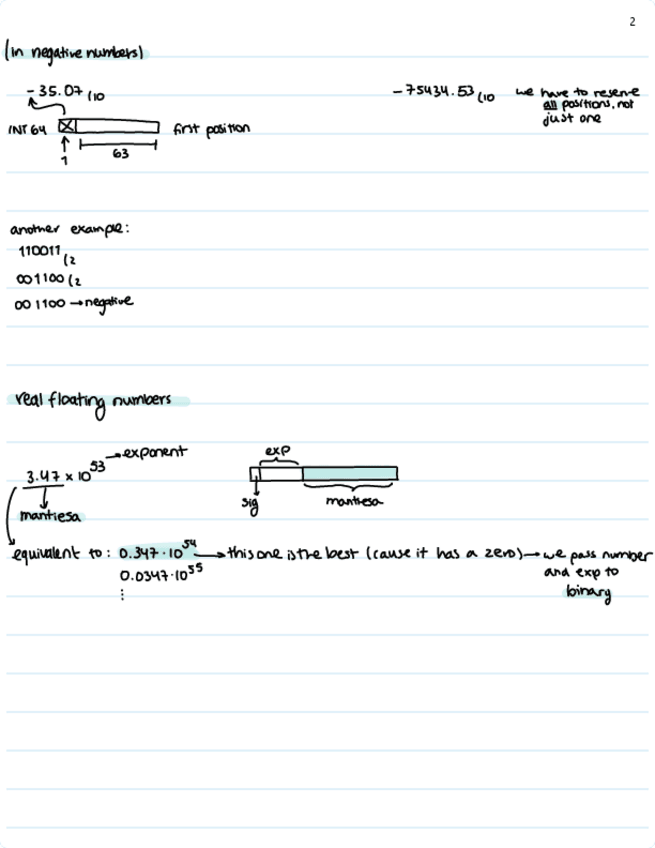 2
(in negative numbers)
- 35.07(10
INT 64
first position
1
63
- 75434.53(10
we have to reserve
all positions, not
just one
another example:
110011(2
001100(2
001100 → negative
real floating numbers
3.47 x 10^53 → exponent
mantiesa
exp
sig
mantiesa
equivalent to: 0.347 · 10^54 → this one is the best (cause it has a zero) → we pass number
and exp to
binary
0.0347 · 10^55
⋮